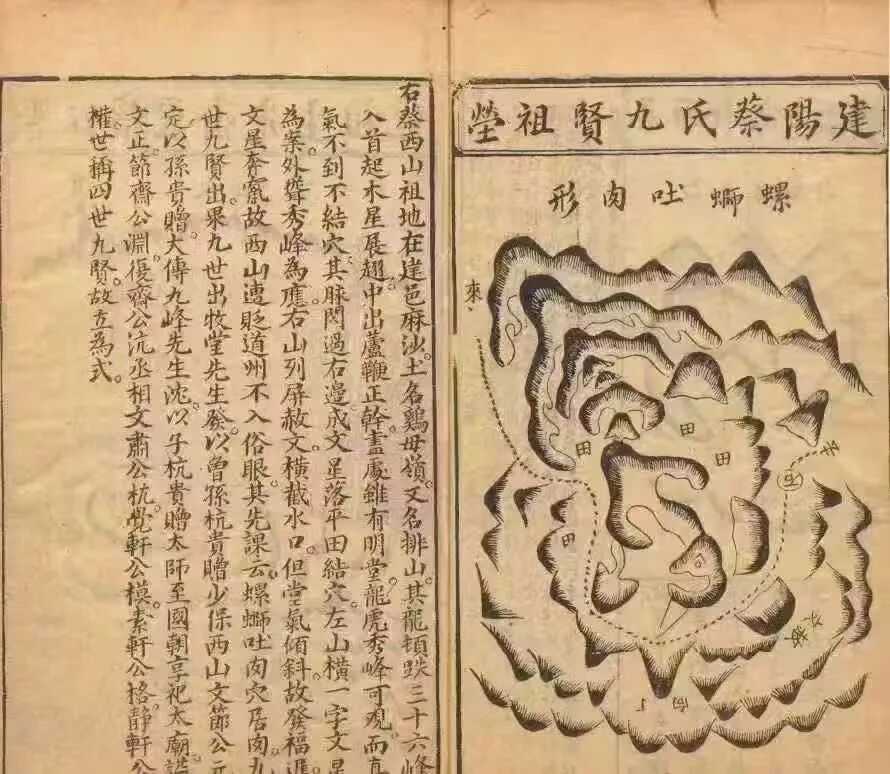 建陽蔡氏九賢祖塋
螺螄吐肉形
來
田
田
田
田
向
右蔡西山祖地在崖邑麻沙土名鷄母嶺又名排山其龍頓跌三十六峰
入首起木星展翅中出蘆鞭正幹盡處雖有明堂龍虎秀峰可觀而真
氣不到不結穴其脉閃過右邊成文星落平田結穴左山横一字文星
為案外聳秀峰為應右山列屏赦文横截水口但堂氣傾斜故發福遲
文星奔竄故西山遭貶道州不入俗眼其先課云螺螄吐肉穴居肉九
世九賢出果九世出牧堂先生發以曾孫杭貴贈少保西山文節公元
定以孫貴贈大傅九峰先生沈以子杭貴贈太師至國朝享祀太廟諡
文正節齋公淵復齋公沆丞相文肅公杭覺軒公模素軒公格靜軒公
權世稱四世九賢故立為式